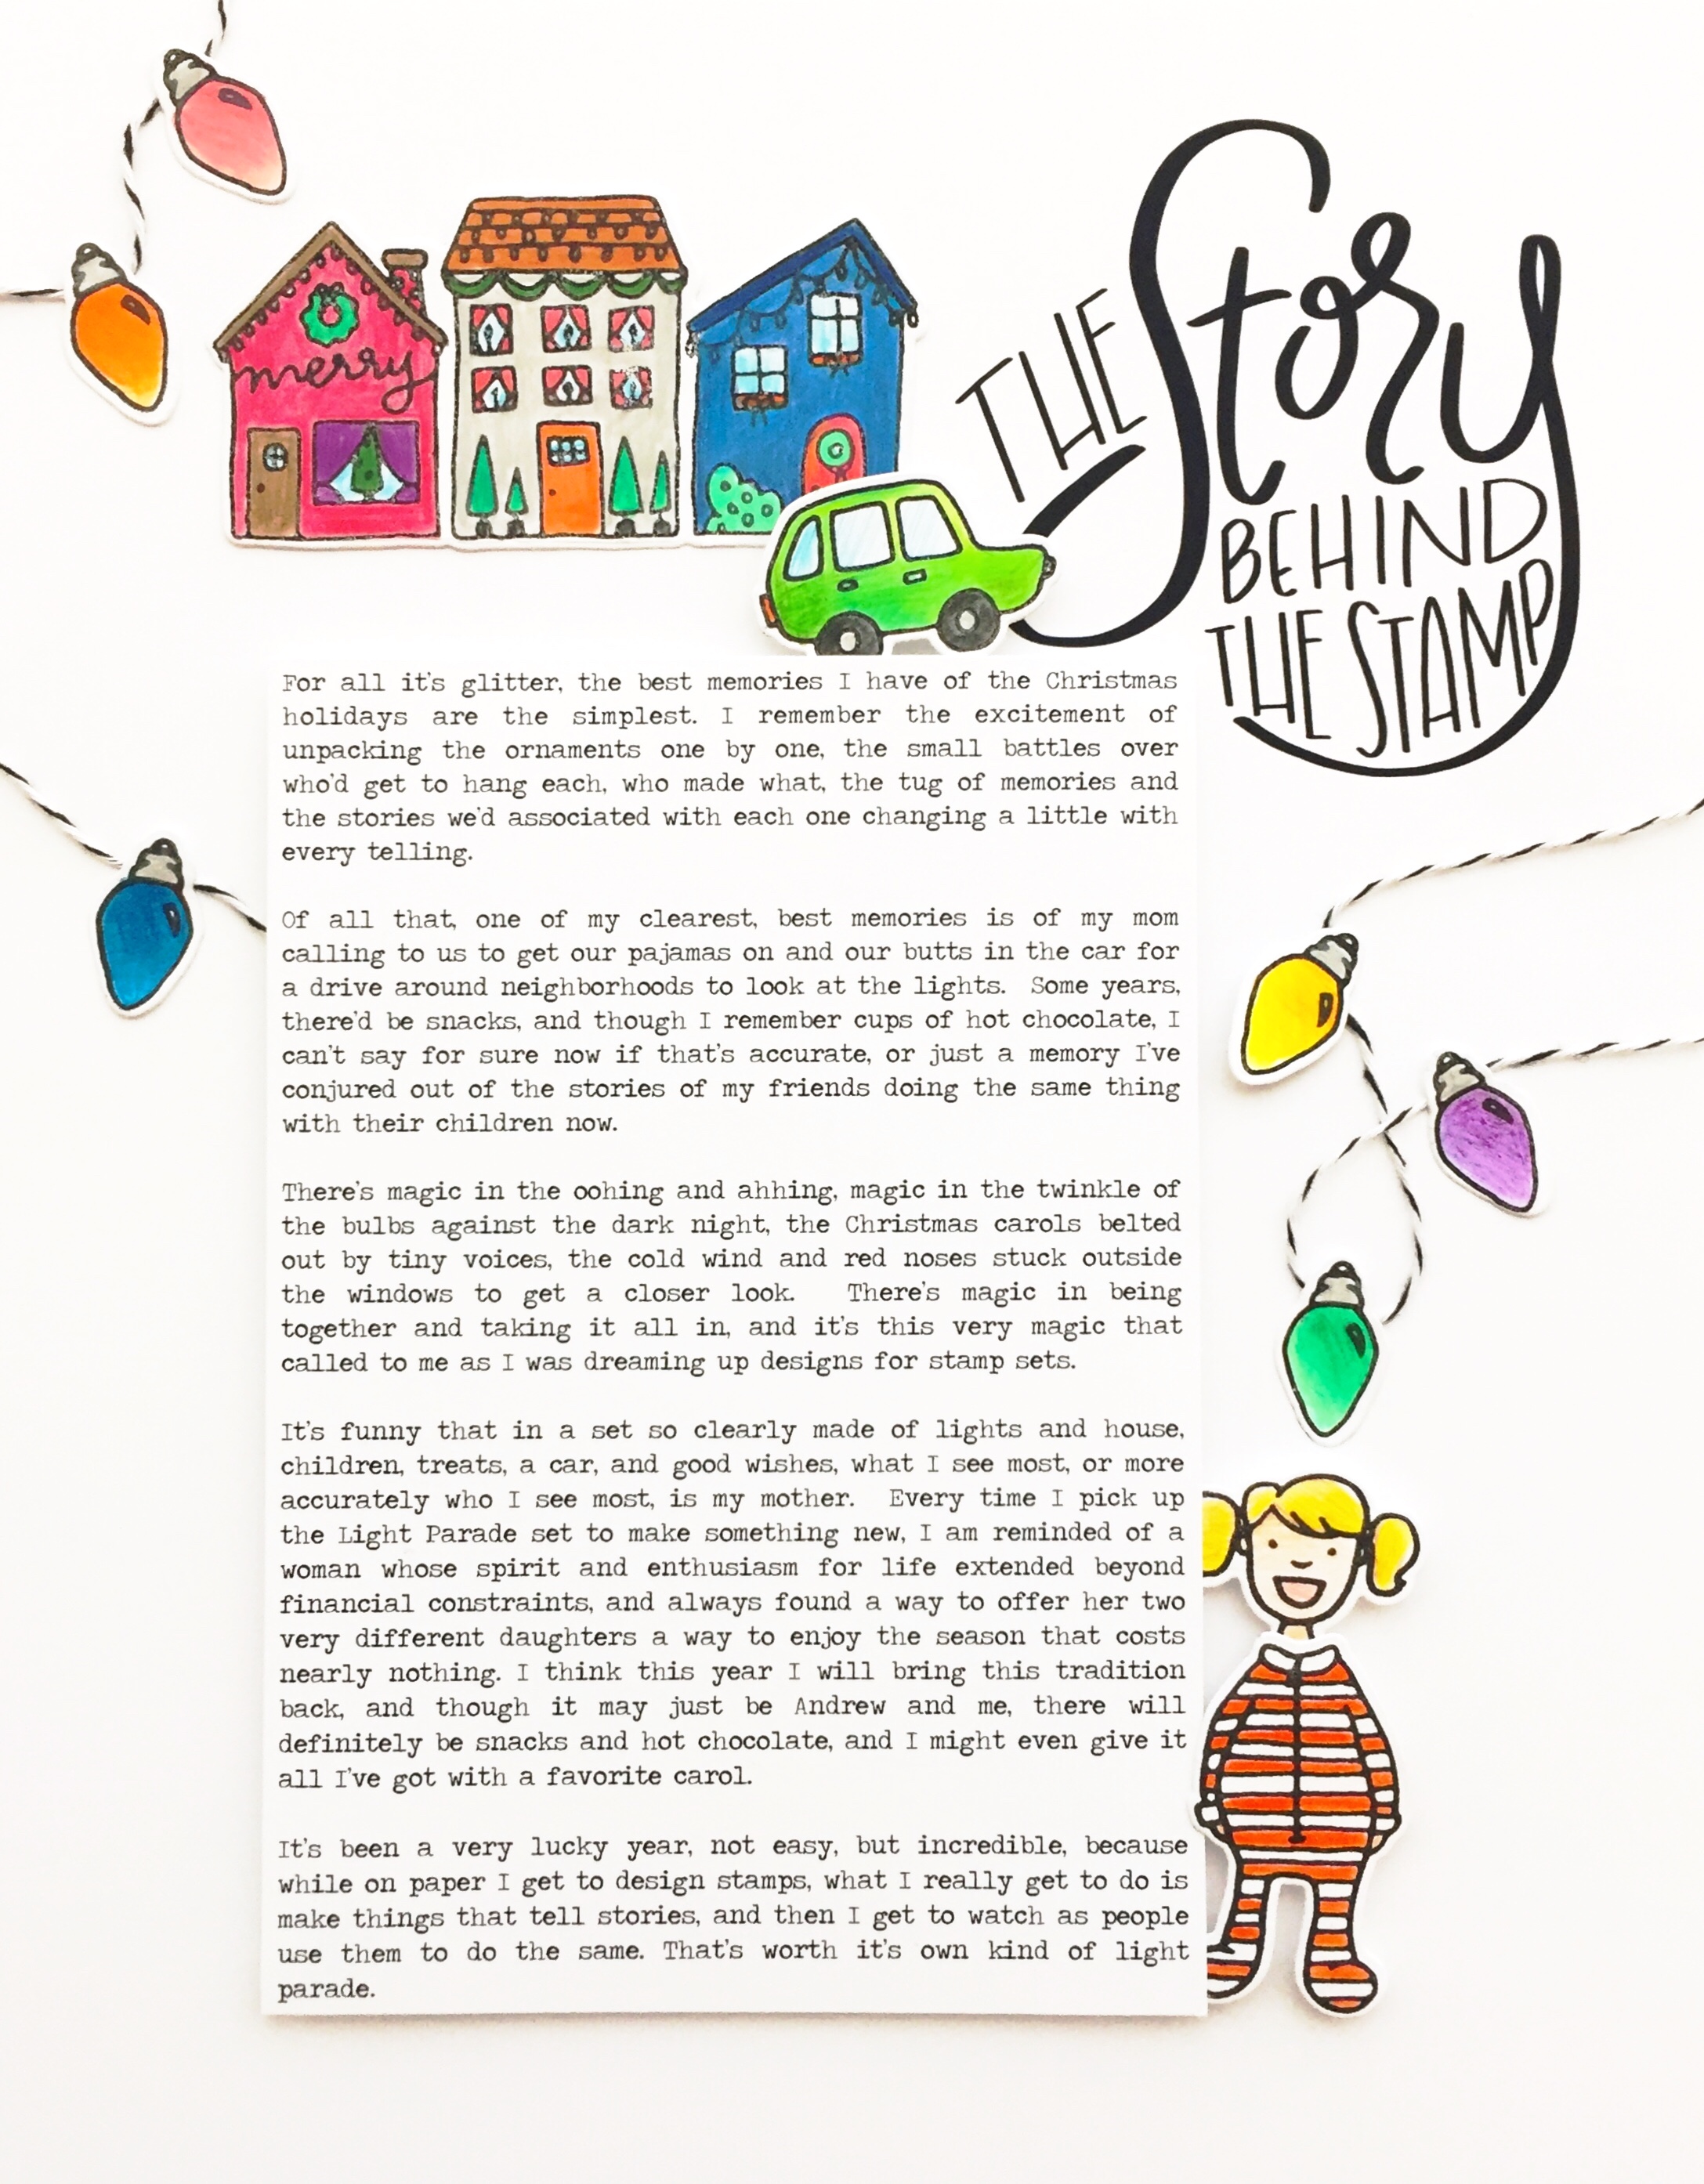 merry
THE Story
BEHIND
THE STAMP
For all it's glitter, the best memories I have of the Christmas
holidays are the simplest. I remember the excitement of
unpacking the ornaments one by one, the small battles over
who'd get to hang each, who made what, the tug of memories and
the stories we'd associated with each one changing a little with
every telling.
Of all that, one of my clearest, best memories is of my mom
calling to us to get our pajamas on and our butts in the car for
a drive around neighborhoods to look at the lights. Some years,
there'd be snacks, and though I remember cups of hot chocolate, I
can't say for sure now if that's accurate, or just a memory I've
conjured out of the stories of my friends doing the same thing
with their children now.
There's magic in the oohing and ahhing, magic in the twinkle of
the bulbs against the dark night, the Christmas carols belted
out by tiny voices, the cold wind and red noses stuck outside
the windows to get a closer look. There's magic in being
together and taking it all in, and it's this very magic that
called to me as I was dreaming up designs for stamp sets.
It's funny that in a set so clearly made of lights and house,
children, treats, a car, and good wishes, what I see most, or more
accurately who I see most, is my mother. Every time I pick up
the Light Parade set to make something new, I am reminded of a
woman whose spirit and enthusiasm for life extended beyond
financial constraints, and always found a way to offer her two
very different daughters a way to enjoy the season that costs
nearly nothing. I think this year I will bring this tradition
back, and though it may just be Andrew and me, there will
definitely be snacks and hot chocolate, and I might even give it
all I've got with a favorite carol.
It's been a very lucky year, not easy, but incredible, because
while on paper I get to design stamps, what I really get to do is
make things that tell stories, and then I get to watch as people
use them to do the same. That's worth it's own kind of light
parade.